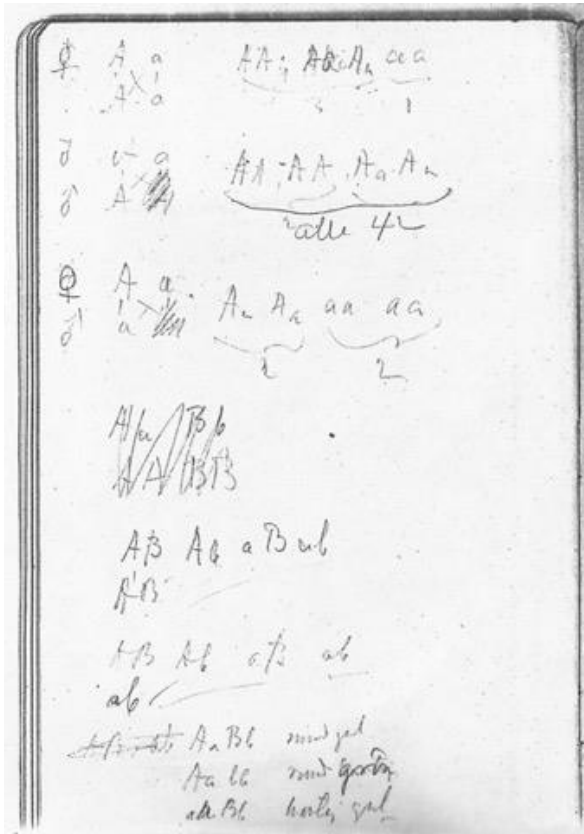 ♀ A a AA; Aa Aa aa
A a 3 1
♂ a AA; AA Aa Aa
♂ A A alle 4
♀ A a Aa Aa aa aa
♂ a 2 2
A a B b
A A B B
AB Ab aB ab
AB
AB Ab aB ab
ab
AaBb rund gul
Aabb rund grön
aaBb gul